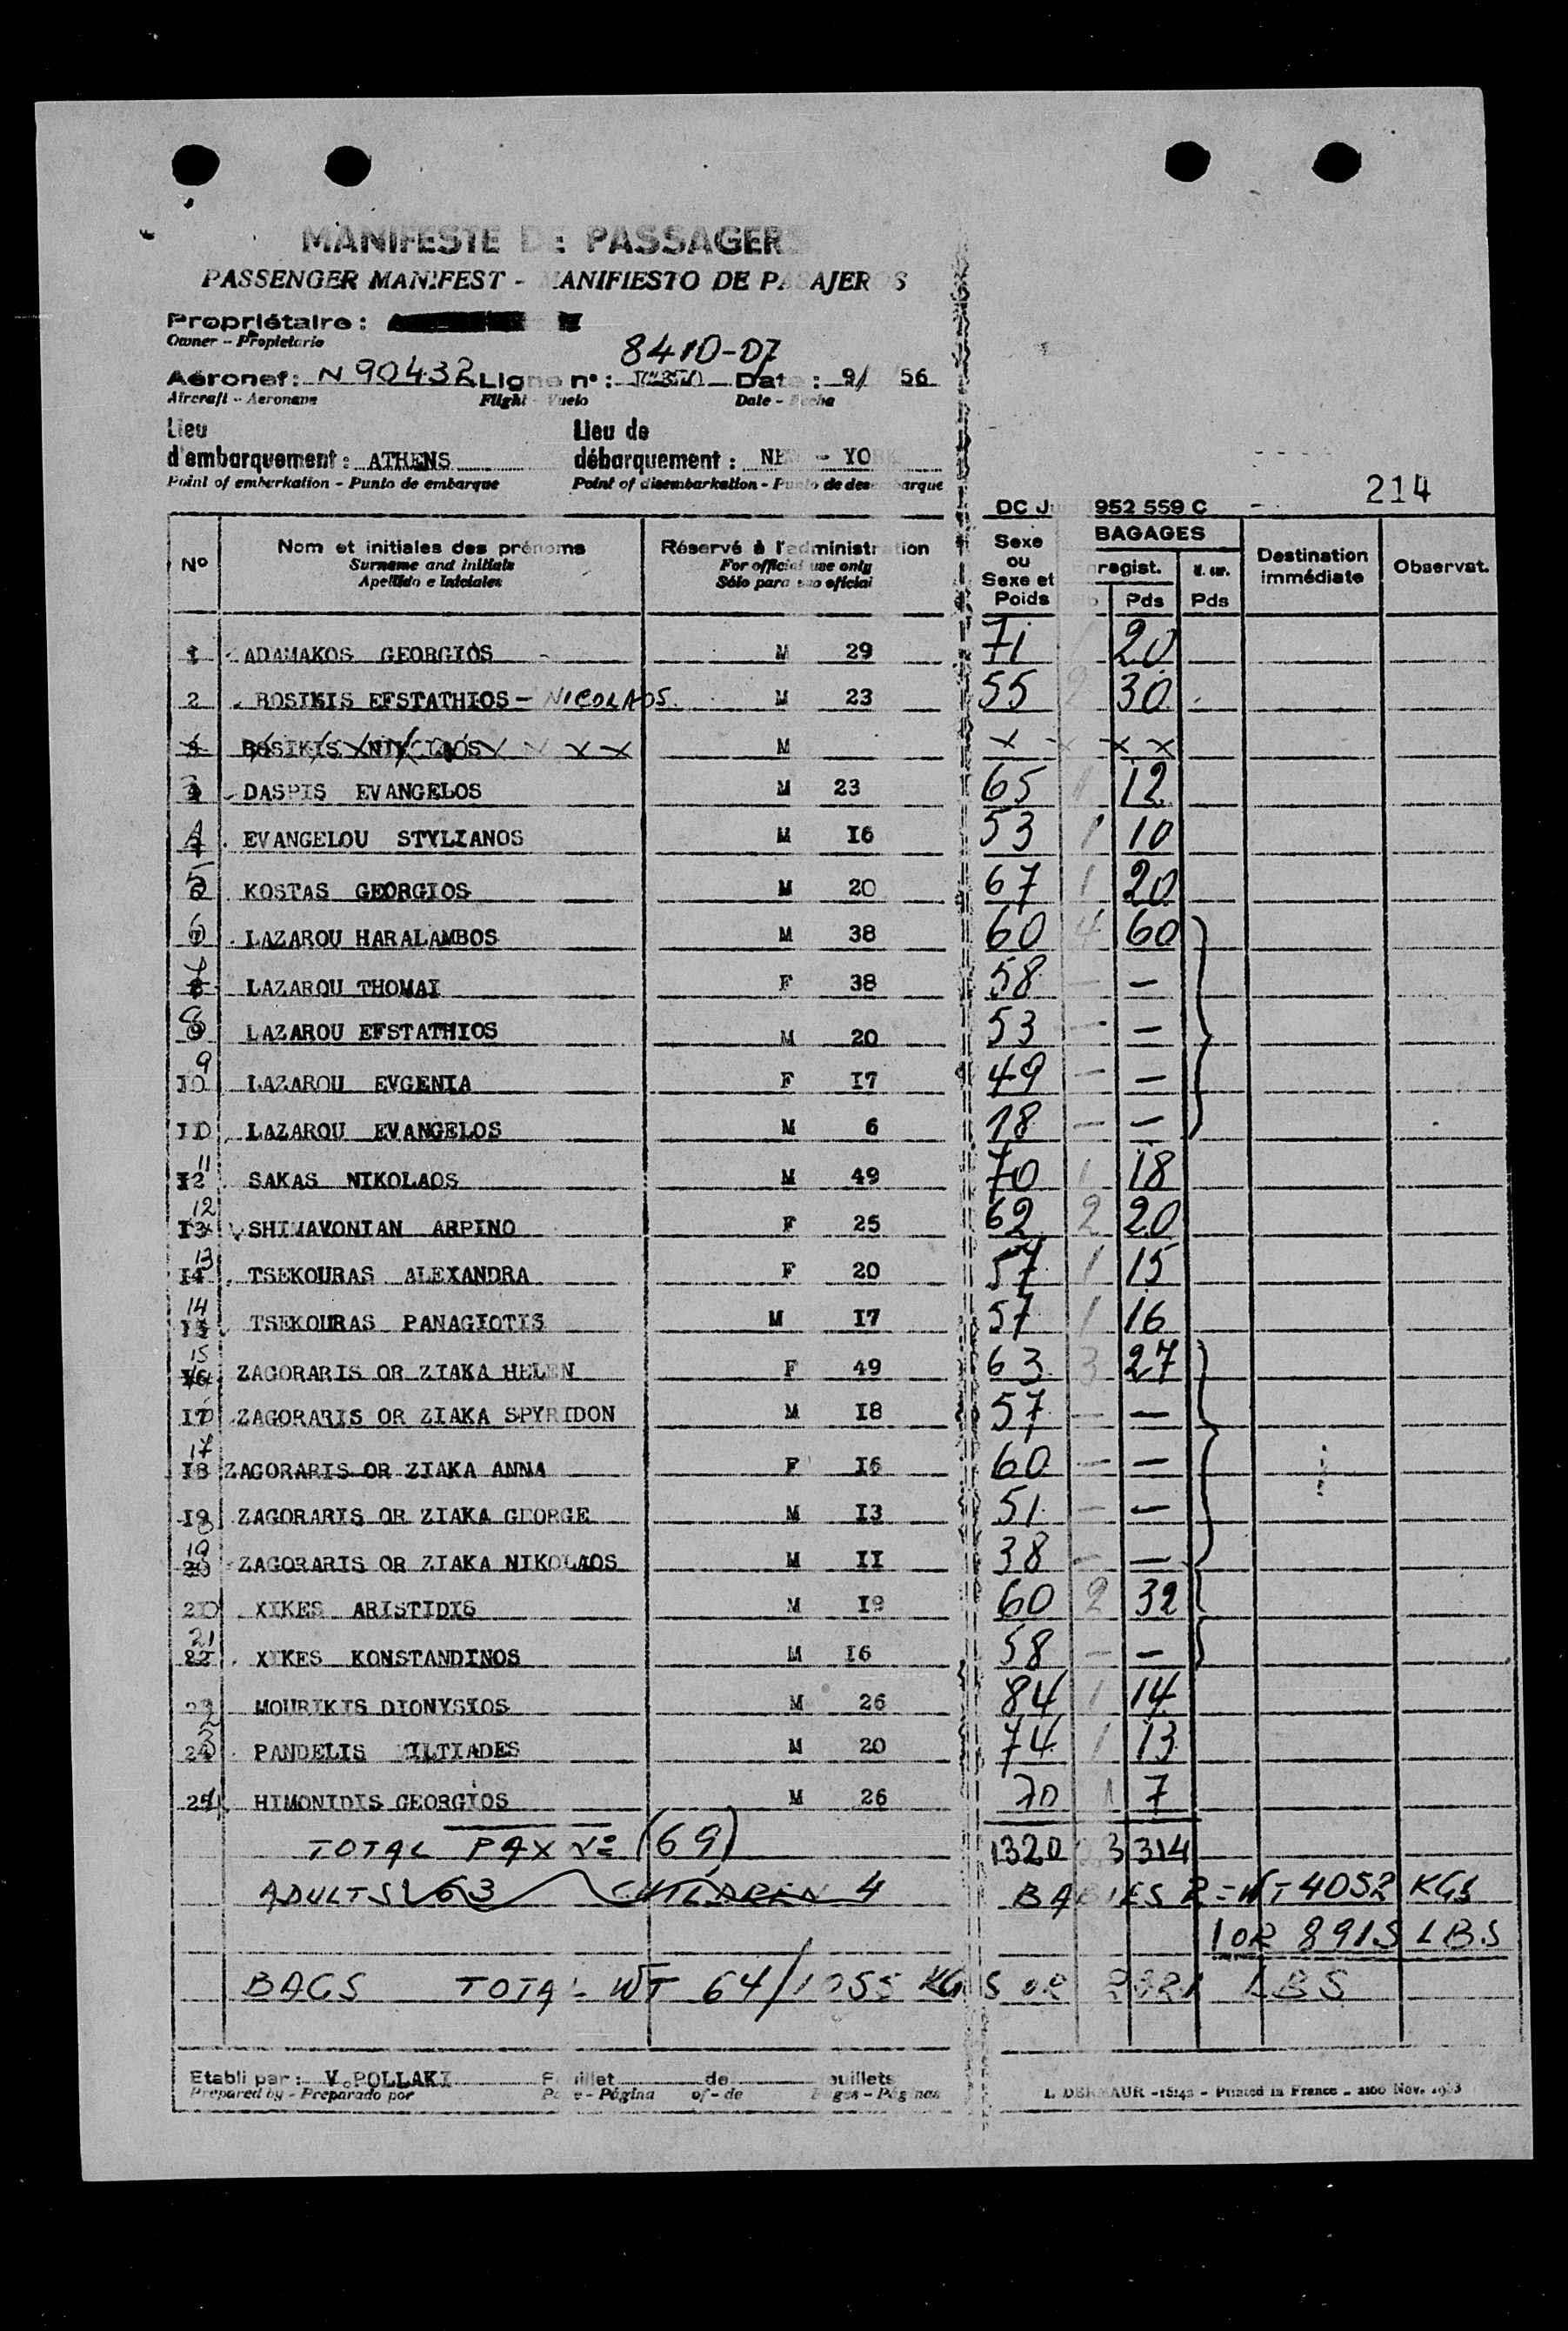 MANIFESTE DE PASSAGERS
PASSENGER MANIFEST - MANIFIESTO DE PASAJEROS
Propriétaire :
Owner - Propietario
8410-07
Aéronef : N 90432 Ligne n° : Date : 9/ 56
Aircraft - Aeronave Flight - Vuelo Date - Fecha
Lieu d'embarquement : ATHENS Lieu de débarquement : NEW - YORK
Point of emberkation - Punto de embarque Point of disembarkation - Punto de desembarque
214
DC 952 559 C
N° Nom et initiales des prénoms Réservé à l'administration Sexe ou Sexe et Poids BAGAGES Destination immédiate Observat.
Surname and initials For official use only Enregist.
Apellido e Iniciales Sólo para uso oficial Pds Pds
1 ADAMAKOS GEORGIOS - M 29 71 20
2 BOSIKIS EFSTATHIOS - NICOLAOS M 23 55 2 30
BOSIKIS NIKOLAOS x x M x x x x
3 DASPIS EVANGELOS M 23 65 1 12
4 EVANGELOU STYLIANOS M I6 53 1 10
5 KOSTAS GEORGIOS M 20 67 1 20
6 LAZAROU HARALAMBOS M 38 60 4 60
7 LAZAROU THOMAI F 38 58 - -
8 LAZAROU EFSTATHIOS M 20 53 - -
9 I0 LAZAROU EVGENIA F I7 49 - -
10 LAZAROU EVANGELOS M 6 18 - -
11 I2 SAKAS NIKOLAOS M 49 70 1 18
12 I3 SHIMAVONIAN ARPINO F 25 62 2 20
13 I4 TSEKOURAS ALEXANDRA F 20 57 1 15
14 I5 TSEKOURAS PANAGIOTIS M I7 57 1 16
15 I6 ZAGORARIS OR ZIAKA HELEN F 49 63 3 27
I7 ZAGORARIS OR ZIAKA SPYRIDON M I8 57 - -
17 I8 ZAGORARIS OR ZIAKA ANNA F I6 60 - -
I9 ZAGORARIS OR ZIAKA GEORGE M I3 51 - -
19 20 ZAGORARIS OR ZIAKA NIKOLAOS M II 38 - -
20 XIKES ARISTIDIS M I9 60 2 32
21 22 XIKES KONSTANDINOS M I6 58 - -
22 MOURIKIS DIONYSIOS M 26 84 1 14
23 PANDELIS MILTIADES M 20 74 1 13
24 HIMONIDIS GEORGIOS M 26 70 1 7
TOTAL PAX No (69) 1320 3 314
ADULTS 63 CHILDREN 4 BABIES 2 = WT 4052 KGS
OR 8915 LBS
BAGS TOTAL WT 64/1055 KGS OR LBS
Etabli par : V.POLLAKI Feuillet de feuillets
Prepared by - Preparado por Page - Página of - de Pages - Páginas
Printed in France - 2100 Nov.